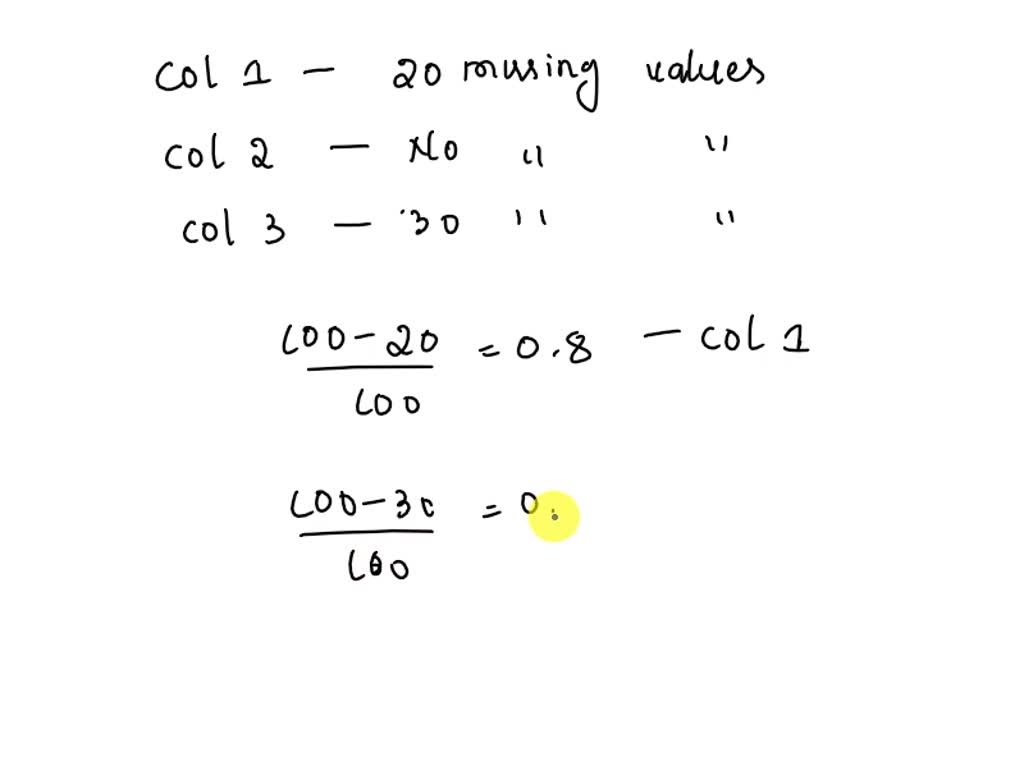 col 1 - 20 missing values
col 2 - No " "
col 3 - 30 " "
100 - 20 = 0.8 - col 1
100
100 - 30 = 0.
100